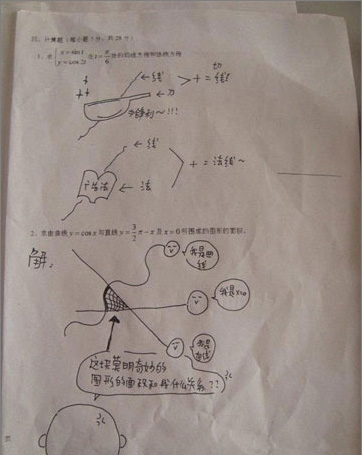 四、计算题（每小题7分，共28分）
1、求{x=sint y=cos2t 在t=π/6处的切线方程和法线方程
← 线
切
> + = 线
++
← 刀
← 线
> + = 法线~
← 法
2、求由曲线 y=cosx 与直线 y=3/2π-x 及 x=0 所围成的图形的面积。
解:
我是曲线
我是x=0
我是直线
这块莫明奇妙的
图形的面积和我什么关系??